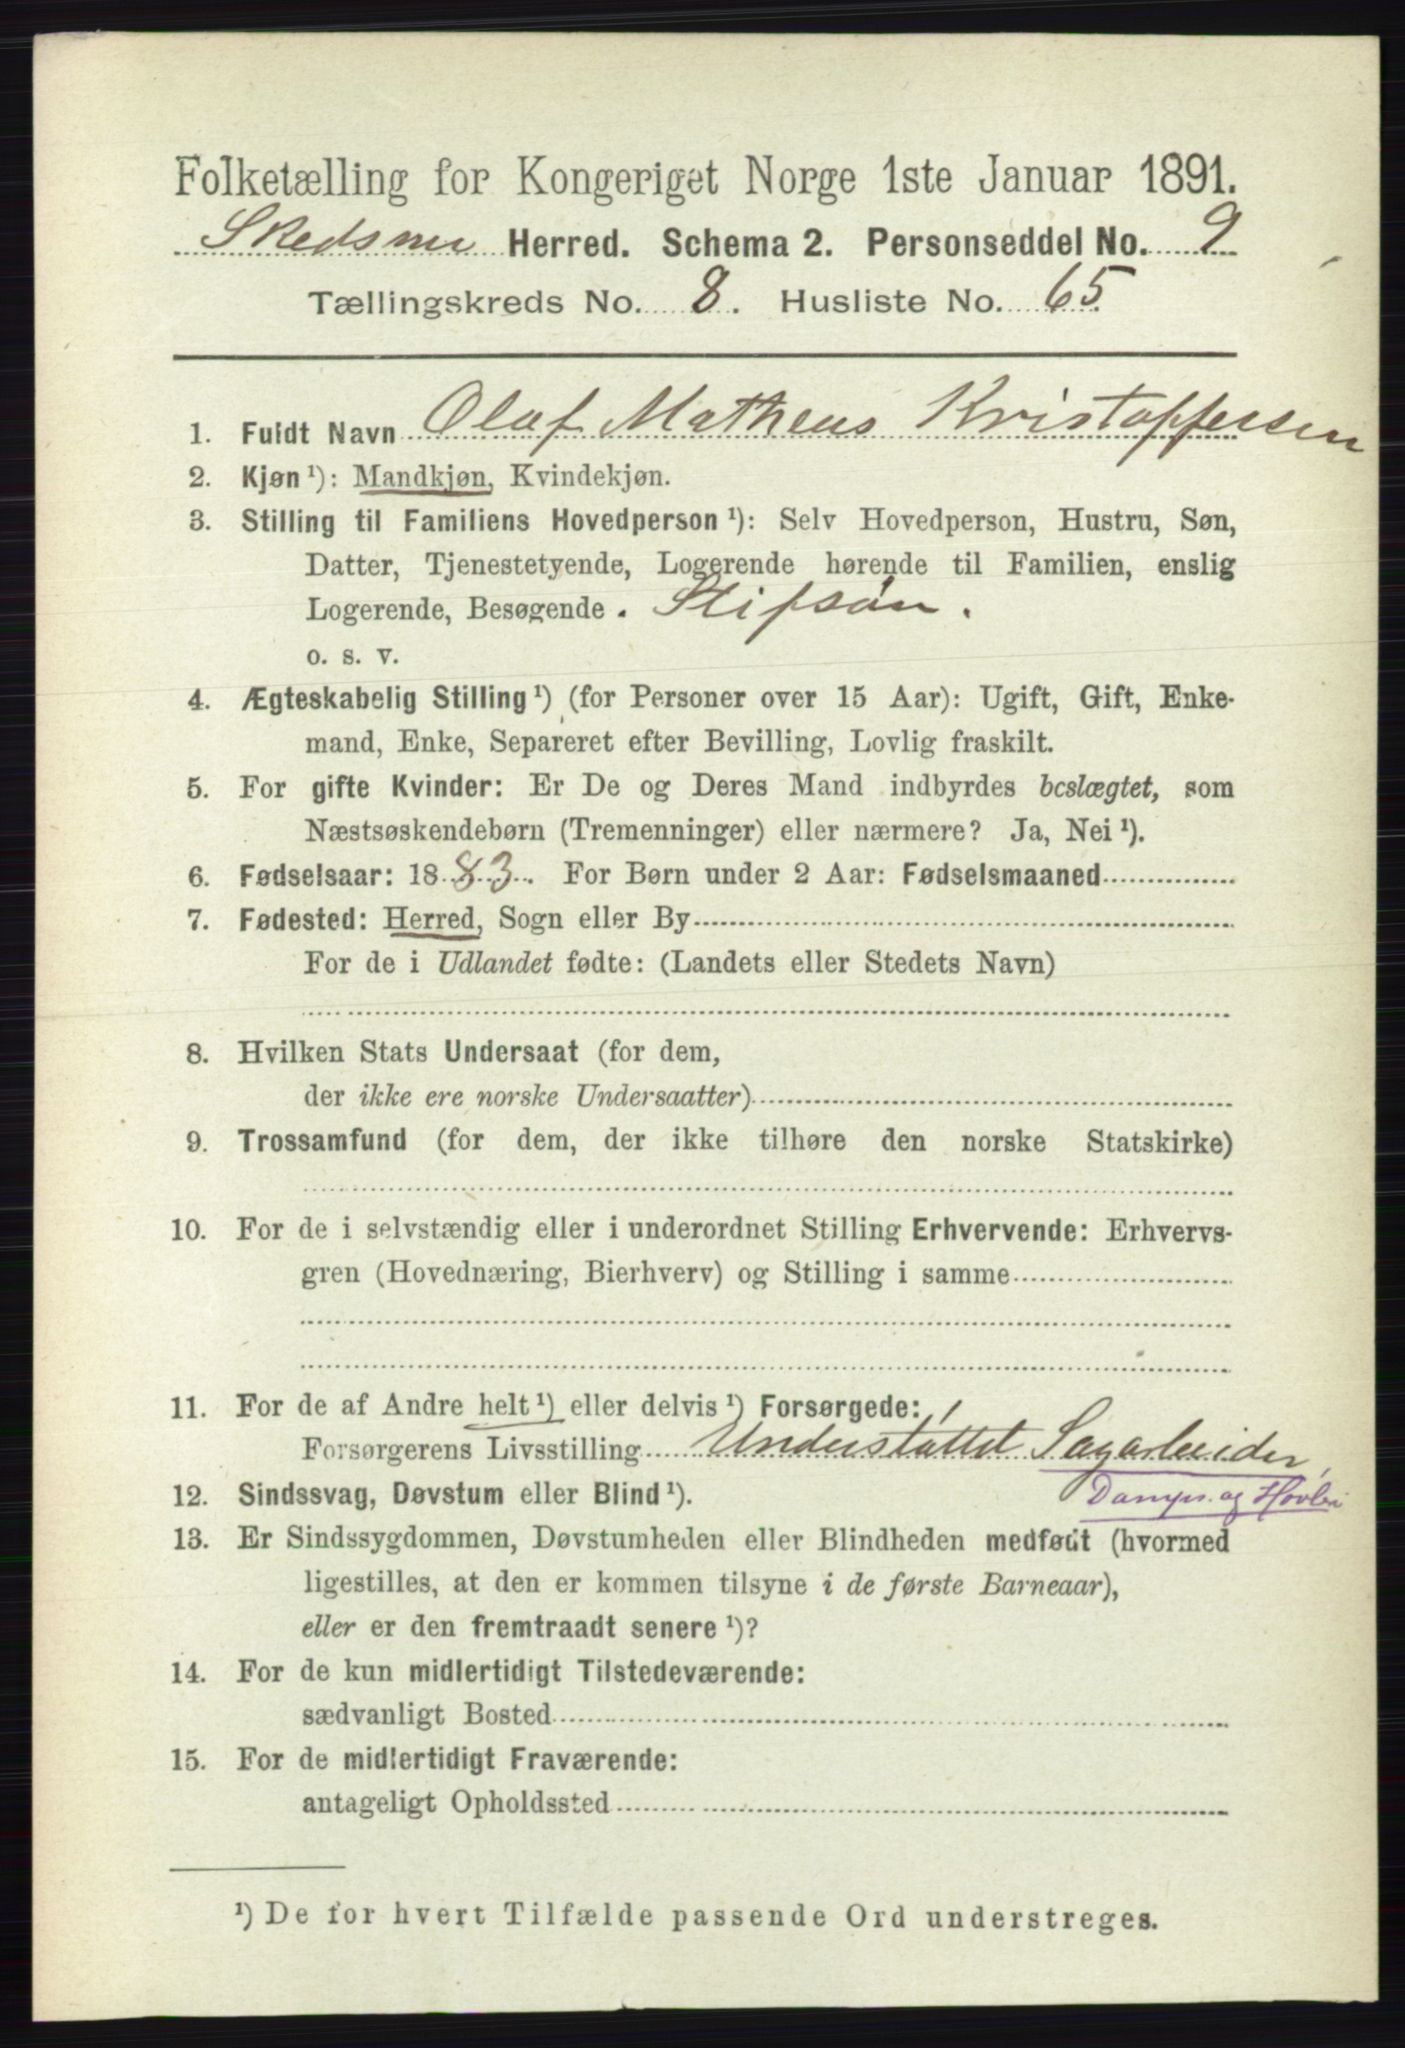 Folketælling for Kongeriget Norge 1ste Januar 1891.
Skedsmo Herred. Schema 2. Personseddel No. 9
Tællingskreds No. 8. Husliste No. 65
1. Fuldt Navn Olaf Matheus Kristoffersen
2. Kjøn ¹): Mandkjøn, Kvindekjøn.
3. Stilling til Familiens Hovedperson ¹): Selv Hovedperson, Hustru, Søn,
Datter, Tjenestetyende, Logerende hørende til Familien, enslig
Logerende, Besøgende . Stifsøn .
o. s. v.
4. Ægteskabelig Stilling ¹) (for Personer over 15 Aar): Ugift, Gift, Enke-
mand, Enke, Separeret efter Bevilling, Lovlig fraskilt.
5. For gifte Kvinder: Er De og Deres Mand indbyrdes beslægtet, som
Næstsøskendebørn (Tremenninger) eller nærmere? Ja, Nei ¹).
6. Fødselsaar: 1883. For Børn under 2 Aar: Fødselsmaaned
7. Fødested: Herred, Sogn eller By
For de i Udlandet fødte: (Landets eller Stedets Navn)
8. Hvilken Stats Undersaat (for dem,
der ikke ere norske Undersaatter)
9. Trossamfund (for dem, der ikke tilhøre den norske Statskirke)
10. For de i selvstændig eller i underordnet Stilling Erhvervende: Erhvervs-
gren (Hovednæring, Bierhverv) og Stilling i samme
11. For de af Andre helt ¹) eller delvis ¹) Forsørgede:
Forsørgerens Livsstilling Understøttet Sagarbeider,
12. Sindssvag, Døvstum eller Blind ¹). Damps. og Høvleri
13. Er Sindssygdommen, Døvstumheden eller Blindheden medfødt (hvormed
ligestilles, at den er kommen tilsyne i de første Barneaar),
eller er den fremtraadt senere ¹)?
14. For de kun midlertidigt Tilstedeværende:
sædvanligt Bosted
15. For de midlertidigt Fraværende:
antageligt Opholdssted
¹) De for hvert Tilfælde passende Ord understreges.